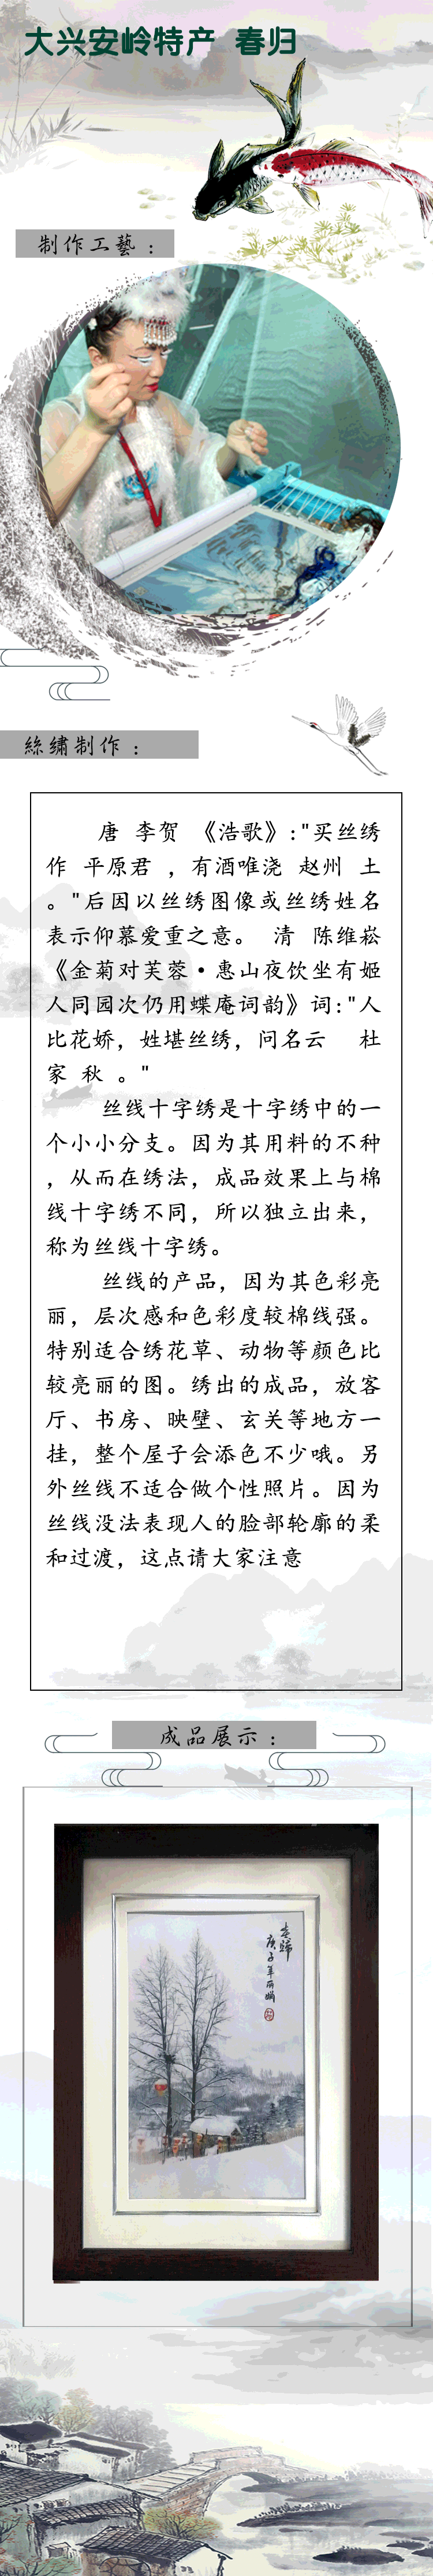 大兴安岭特产 春归
制作工藝：
絲繡制作：
唐 李贺 《浩歌》:"买丝绣
作 平原君 ，有酒唯浇 赵州 土
。"后因以丝绣图像或丝绣姓名
表示仰慕爱重之意。 清 陈维崧
《金菊对芙蓉·惠山夜饮坐有姬
人同园次仍用蝶庵词韵》词:"人
比花娇，姓堪丝绣，问名云 杜
家 秋 。"
丝线十字绣是十字绣中的一
个小小分支。因为其用料的不种
，从而在绣法，成品效果上与棉
线十字绣不同，所以独立出来，
称为丝线十字绣。
丝线的产品，因为其色彩亮
丽，层次感和色彩度较棉线强。
特别适合绣花草、动物等颜色比
较亮丽的图。绣出的成品，放客
厅、书房、映壁、玄关等地方一
挂，整个屋子会添色不少哦。另
外丝线不适合做个性照片。因为
丝线没法表现人的脸部轮廓的柔
和过渡，这点请大家注意
成品展示：
春歸
庚子年